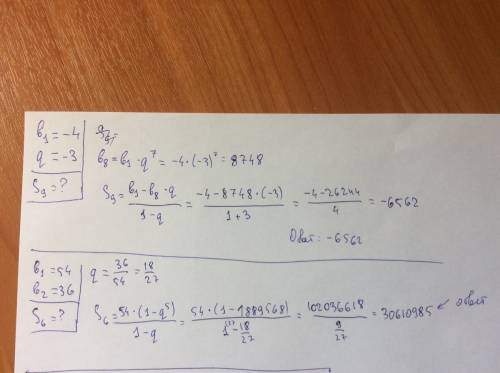 b₁ = -4
q = -3
S₉ = ?
b₈ = b₁ · q⁷ = -4 · (-3)⁷ = 8748
S₉ = (b₁ - b₈ · q) / (1 - q) = (-4 - 8748 · (-3)) / (1 + 3) = (-4 - 26244) / 4 = -6562
Ответ: -6562
b₁ = 54
b₂ = 36
S₆ = ?
q = 36/54 = 18/27
S₆ = 54 · (1 - q⁵) / (1 - q) = 54 · (1 - 1889568) / (1 - 18/27) = 102036618 / (9/27) = 30610985 ← ответ